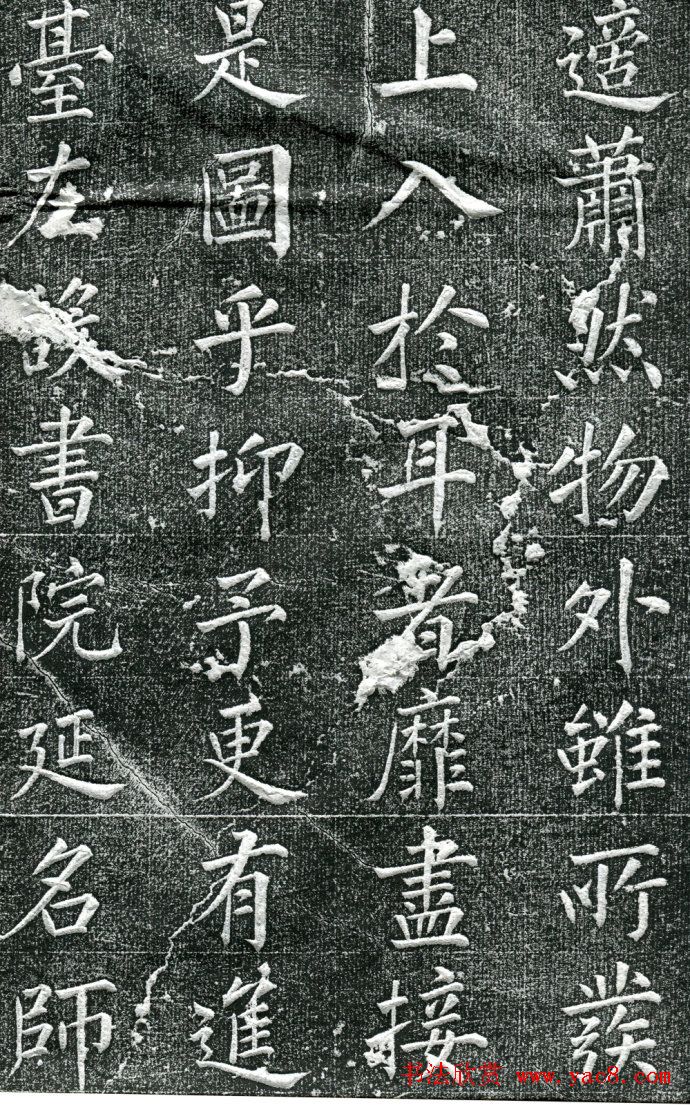 適蕭然物外雖所發
上入於耳者靡盡接
是圖乎抑予更有進
臺左設書院延名師
书法欣赏 www.yac8.com